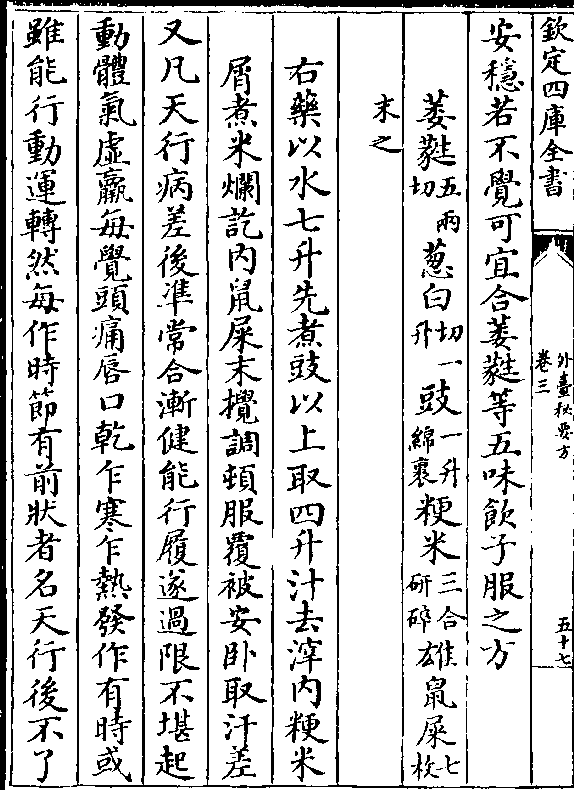 欽定四庫全書
外臺秘要方
卷三
五十七
安穩若不覺可宜合萎蕤等五味飲子服之方
萎蕤五兩切葱白切一升豉一升綿裹粳米三合研碎雄鼠屎七枚
末之
右藥以水七升先煮豉以上取四升汁去滓内粳米
屑煮米爛訖内鼠屎末攪調頓服覆被安卧取汗差
又凡天行病差後準常合漸健能行履遂過限不堪起
動體氣虛羸每覺頭痛唇口乾乍寒乍熱發作有時或
雖能行動運轉然每作時節有前狀者名天行後不了